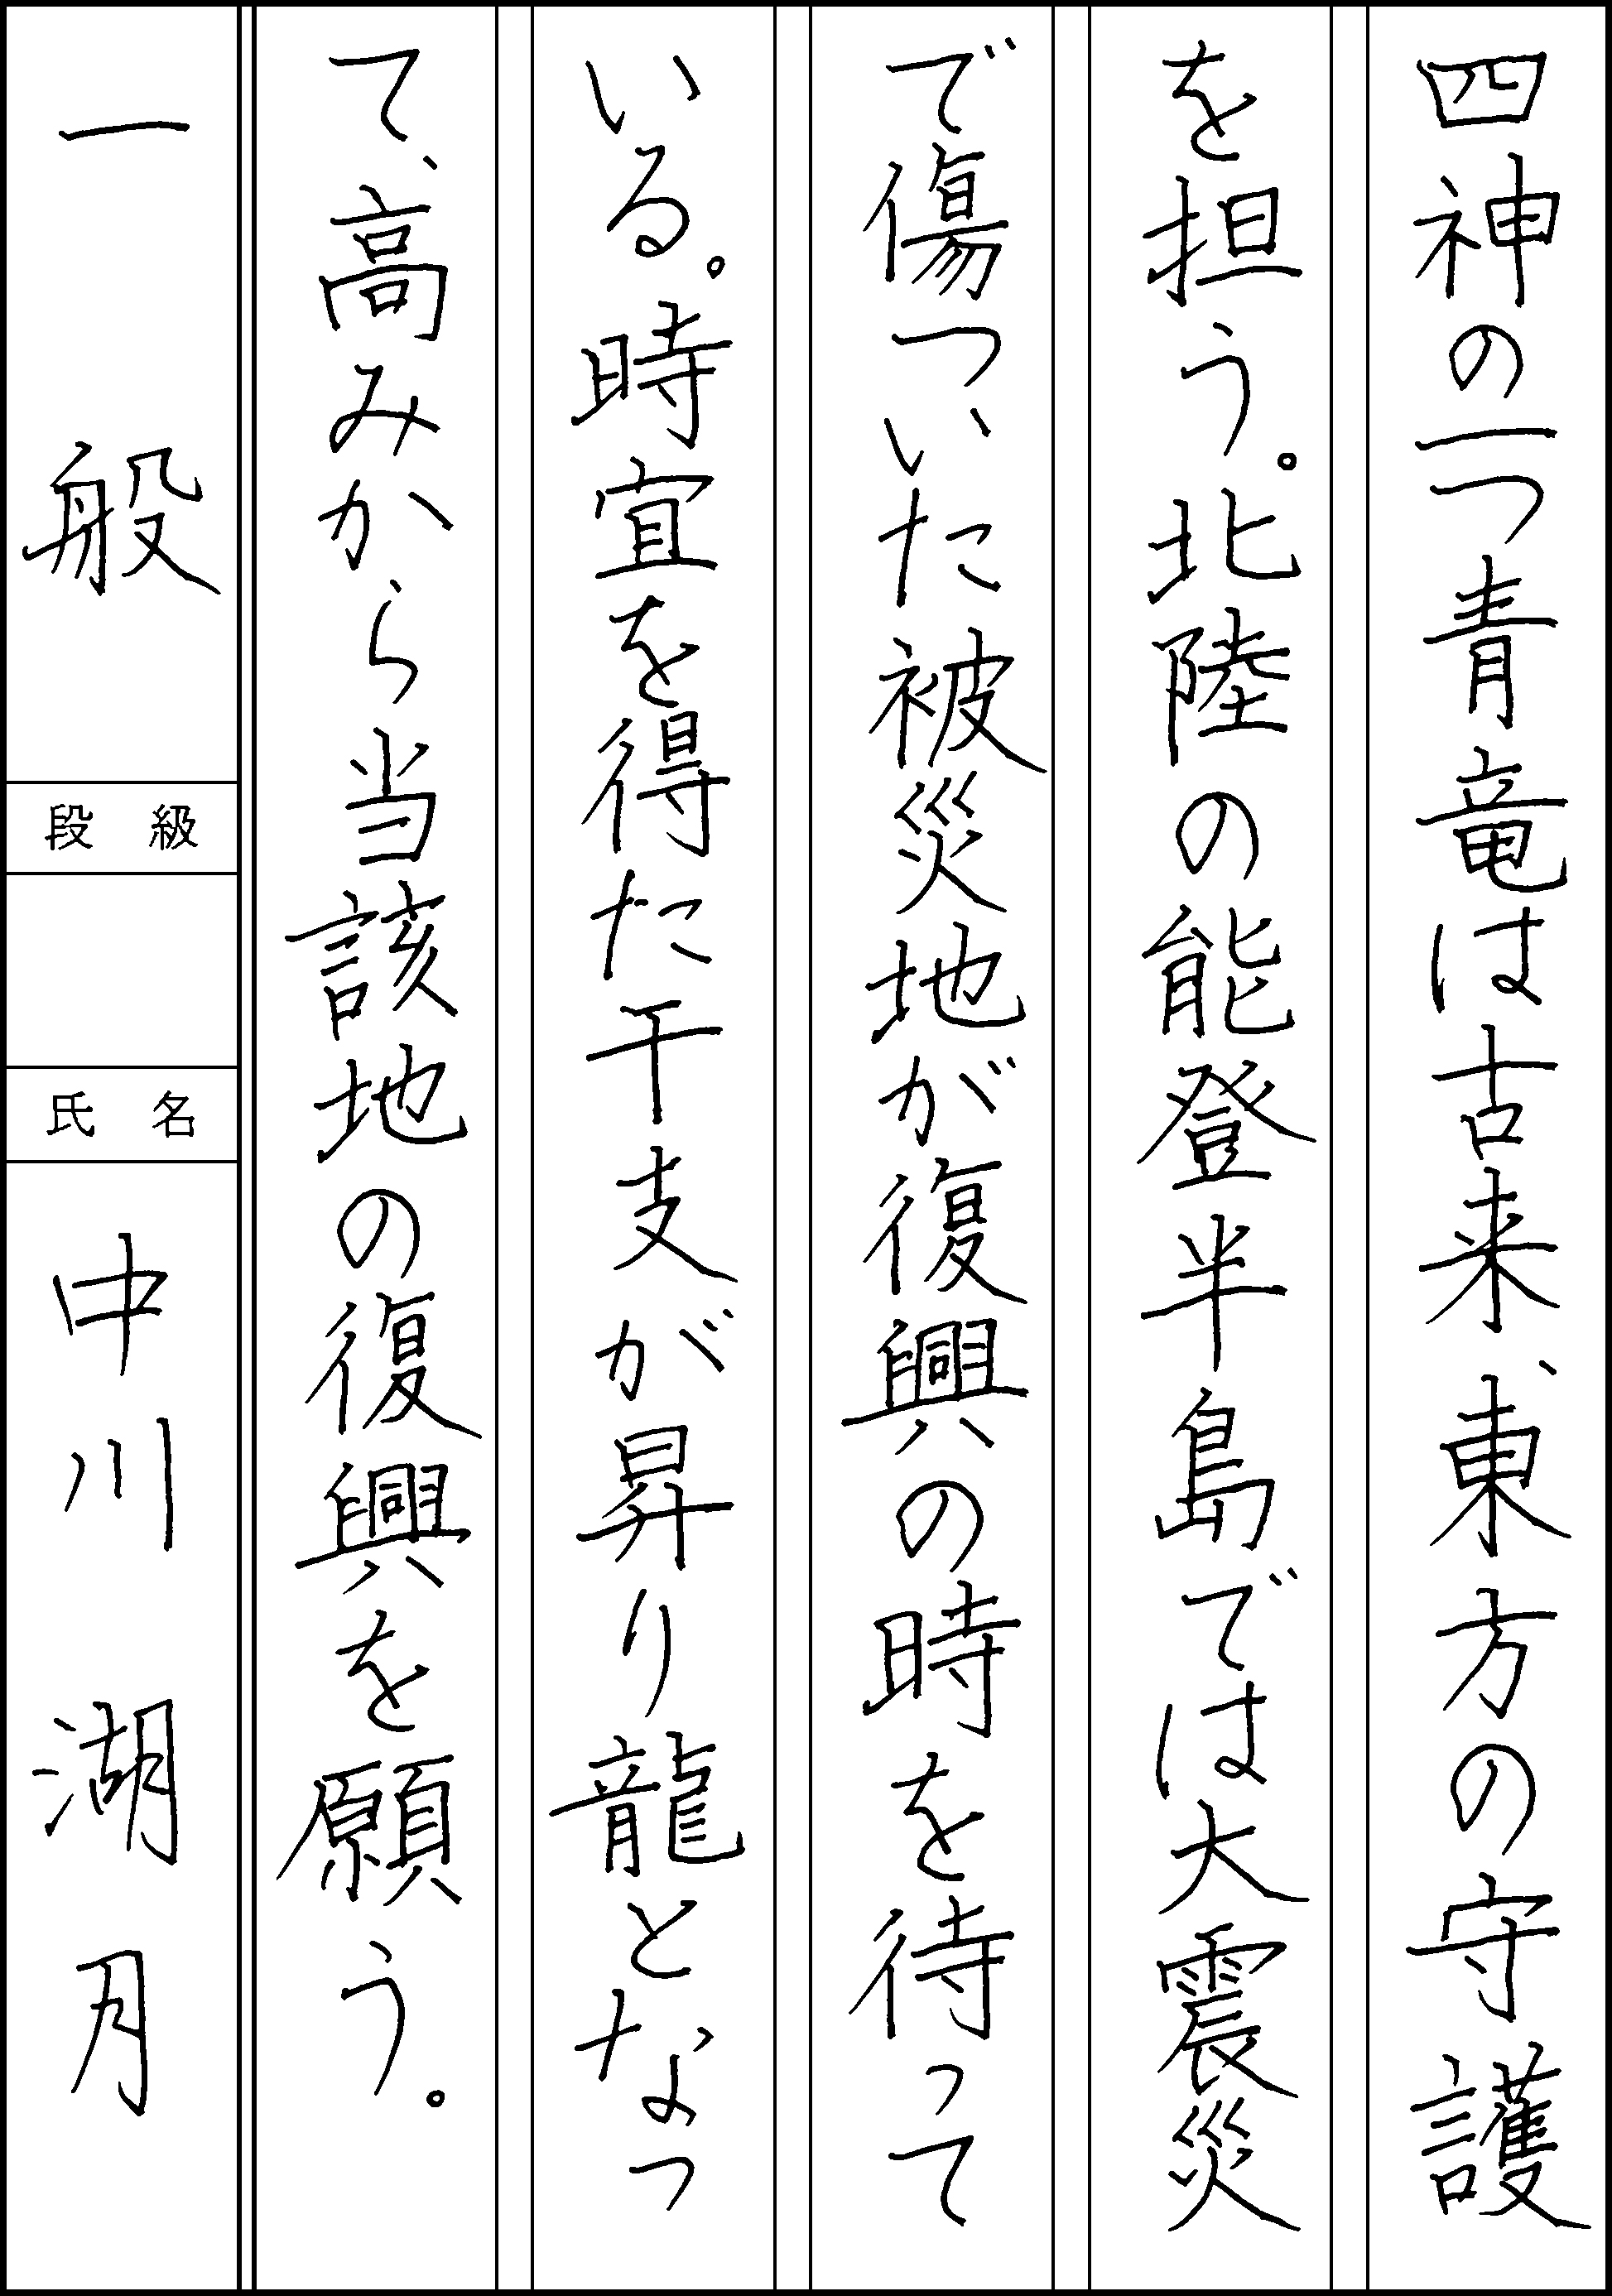 四神の一つ青竜は古来、東方の守護
を担う。北陸の能登半島では大震災
で傷ついた被災地が復興の時を待って
いる。時宜を得た干支が昇り龍となっ
て、高みから当該地の復興を願う。
一般
段級
氏名
中川湖月